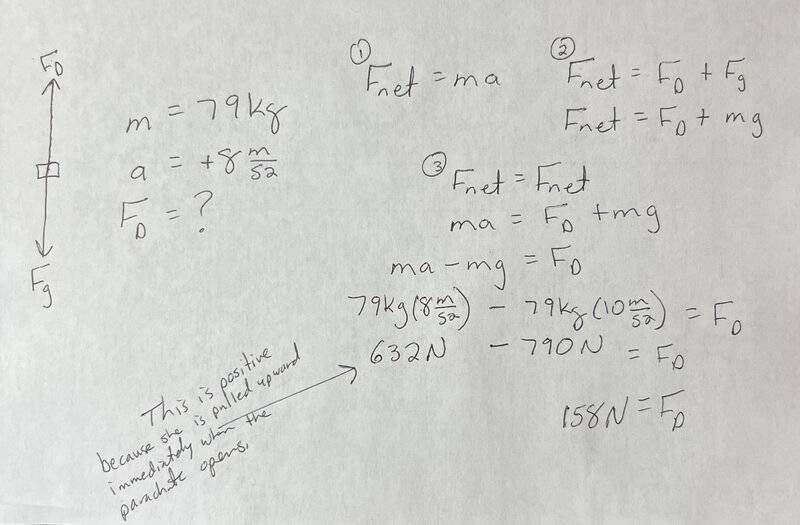 F_D
F_g
m = 79kg
a = +8 m/s2
F_D = ?
①
F_net = ma
②
F_net = F_D + F_g
F_net = F_D + mg
③
F_net = F_net
ma = F_D + mg
ma - mg = F_D
79kg(8 m/s2) - 79kg(10 m/s2) = F_D
632N - 790N = F_D
158N = F_D
This is positive
because she is pulled upward
immediately when the
parachute opens.